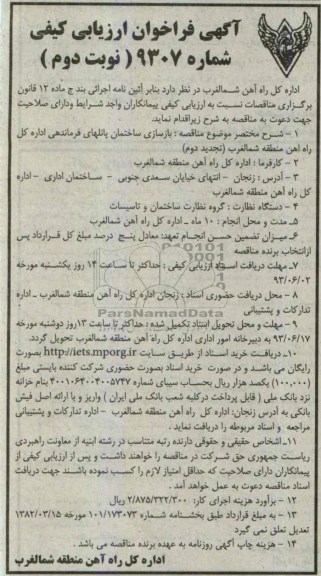 آگهی فراخوان ارزیابی کیفی
شماره ۹۳۰۷ ( نوبت دوم )
اداره کل راه آهن شمالغرب در نظر دارد بنابر آئین نامه اجرائی بند ج ماده ۱۲ قانون
برگزاری مناقصات نسبت به ارزیابی کیفی پیمانکاران واجد شرایط ودارای صلاحیت
جهت دعوت به مناقصه به شرح زیراقدام نماید.
۱ - شرح مختصر موضوع مناقصه : بازسازی ساختمان پانلهای فرماندهی اداره کل
راه آهن منطقه شمالغرب (تجدید دوم)
۲ - کارفرما : اداره کل راه آهن منطقه شمالغرب
۳ - آدرس : زنجان - انتهای خیابان سعدی جنوبی - ساختمان اداری - اداره
کل راه آهن منطقه شمالغرب
۴ - دستگاه نظارت : گروه نظارت ساختمان و تاسیسات
۵ - مدت و محل انجام : ۱۰ ماه - اداره کل راه آهن شمالغرب
۶ - میزان تضمین حسن انجام تعهد: معادل پنج درصد مبلغ کل قرارداد پس
ازانتخاب برنده مناقصه
۷ - مهلت دریافت اسناد ارزیابی کیفی : حداکثر تا ساعت ۱۴ روز یکشنبه مورخه
۹۳/۰۶/۰۲
۸ - محل دریافت حضوری اسناد : زنجان اداره کل راه آهن منطقه شمالغرب - اداره
تدارکات و پشتیبانی
ParsNamadData
۹ - مهلت و محل تحویل اسناد تکمیل شده : حداکثر تا ساعت ۱۳ روز دوشنبه مورخه
۹۳/۰۶/۱۷ به دبیرخانه امور اداری اداره کل راه آهن منطقه شمالغرب تحویل گردد.
۱۰ - دریافت خرید اسناد از طریق سایت http://iets.mporg.ir بصورت
رایگان می باشد و در صورت خرید اسناد بصورت حضوری شرکت کننده بایستی مبلغ
(۱۰۰,۰۰۰) یکصد هزار ریال بحساب سیبای شماره ۴۰۰۱۰۶۴۰۰۴۰۰۵۷۴۷ بنام خزانه
نزد بانک ملی ( قابل پرداخت درکلیه شعب بانک ملی ایران ) واریز و با ارائه اصل فیش
بانکی به آدرس زنجان: اداره کل راه آهن منطقه شمالغرب - اداره تدارکات و پشتیبانی
مراجعه و اسناد مربوطه را دریافت نماید .
۱۱ - اشخاص حقیقی و حقوقی دارنده رتبه متناسب در رشته ابنیه از معاونت راهبردی
ریاست جمهوری حق شرکت در مناقصه را خواهند داشت و پس از ارزیابی کیفی از
پیمانکاران دارای صلاحیت که حداقل امتیاز لازم را کسب نموده باشند جهت دریافت
اسناد مناقصه دعوت به عمل خواهد آمد .
۱۲ - برآورد هزینه اجرای کار: ۲/۸۷۵/۳۲۲/۳۰۰ ریال
۱۳ - به مبلغ قرارداد طبق بخشنامه شماره ۱۰۱/۱۷۳۰۷۳ مورخه ۱۳۸۲/۰۳/۱۵
تعدیل تعلق نمی گیرد
۱۴ - هزینه چاپ آگهی روزنامه به عهده برنده مناقصه می باشد .
اداره کل راه آهن منطقه شمالغرب